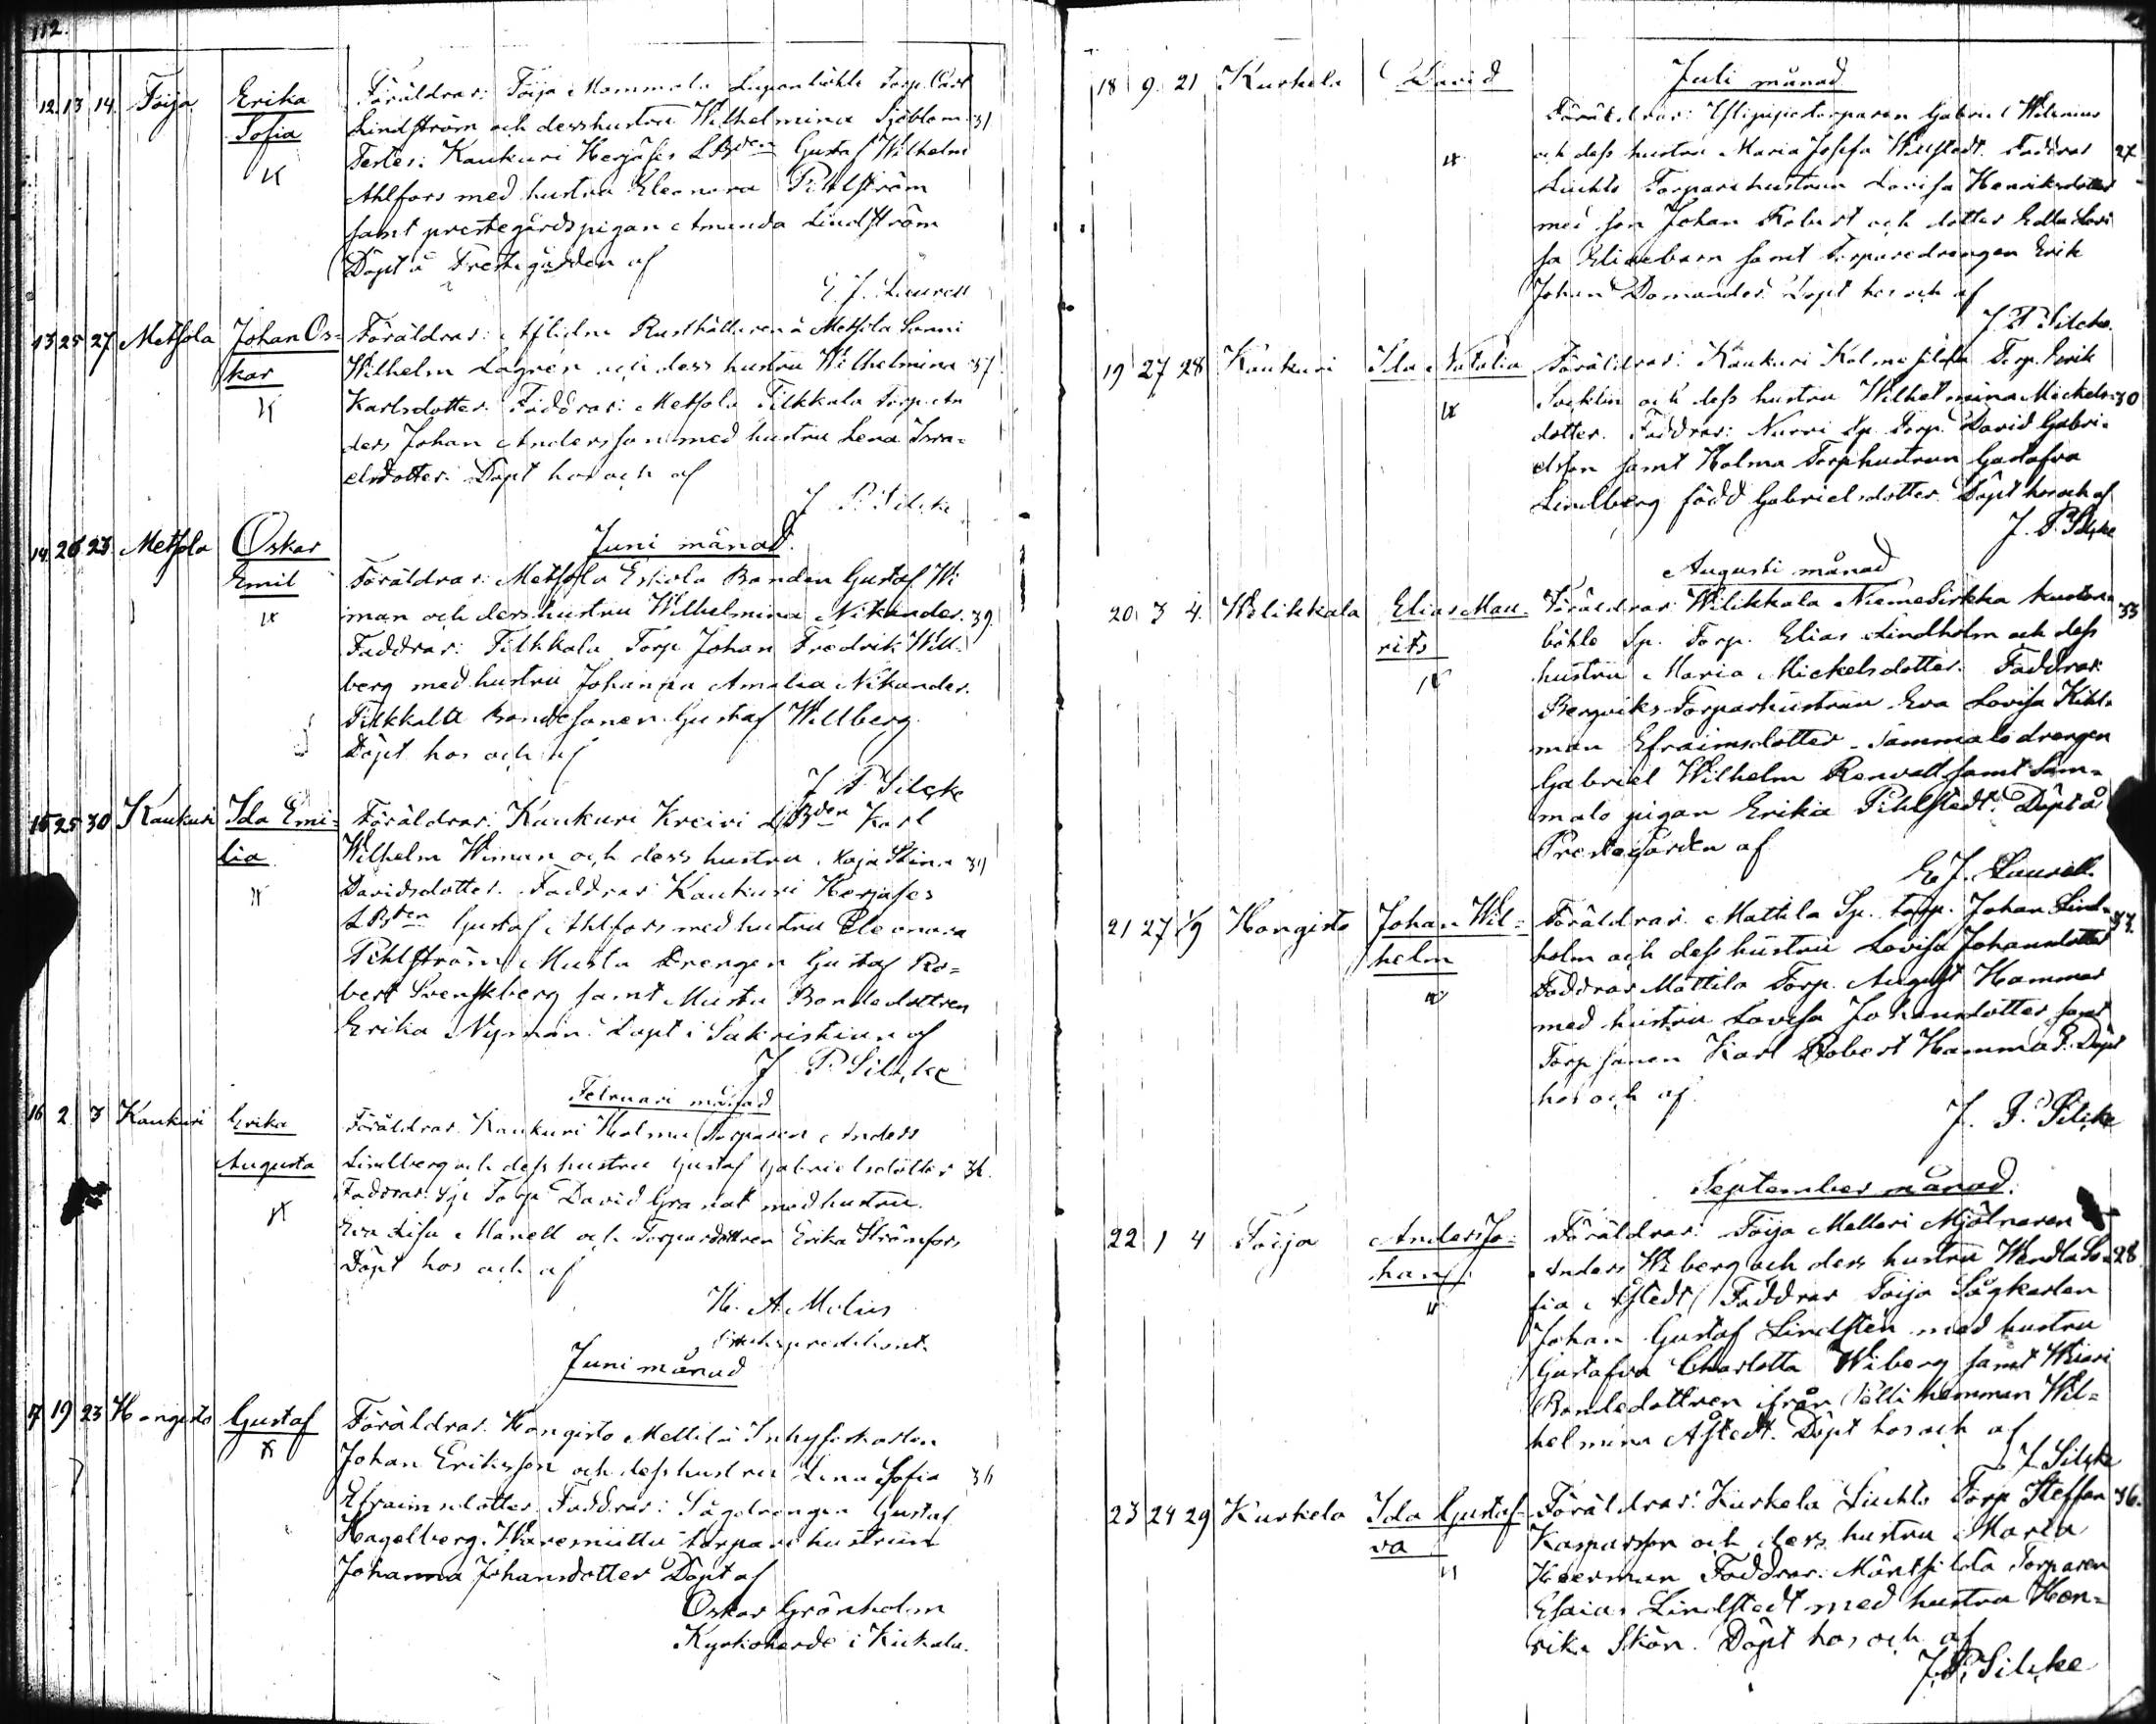 112.
12. 13 14. Toija Erika Föräldrar: Toija Mommola Torp. Carl
Sofia Lindström och dess hustru Wilhelmina Sjöblom 31
Testes: Kaukuri Herjäses LBden Gustaf Wilhelm
Ahlfors med hustru Eleonora Pihlström
samt prestegårdspigan Amanda Lindström
Döpt å Prestegården af
E. J. Laurell
13 25 27 Metsola Johan Os= Föräldrar: Aflidne Rusthållaren å Metsola
kar Wilhelm Lagren och dess hustru Wilhelmina 37
Karlsdotter. Faddrar: Metsola Tilkkala Torp. An
ders Johan Andersson med hustru Lena Isra=
elsdotter. Döpt hos och af
J. P. Silcke
Juni månad.
14. 26 23 Metsola Oskar
Emil Föräldrar: Metsola Eskola Bonden Gustaf Wi
man och dess hustru Wilhelmina Nikander. 39.
Faddrar: Tilkkala Torp Johan Fredrik Will=
berg med hustru Johanna Amalia Nikander.
Tilkkala Bondesonen Gustaf Willberg
Döpt hos och af
J. P. Silcke
15 25 30 Kaukuri Ida Emi= Föräldrar: Kaukuri Kreivi LBden Karl
lia Wilhelm Wiman och dess hustru Maja Stina 39
Davidsdotter. Faddrar Kaukuri Herjäses
LBden Gustaf Ahlfors med hustru Eleonora
Pihlström Musta Drengen Gustaf Ro=
bert Svenskberg samt Musta Bondedottren
Erika Nyman. Döpt i Sakristian af
J. P. Silcke
Februari månad
16 2 3 Kaukuri Erika Föräldrar Kaukuri Holma Torparen Anders
Augusta Lindberg och dess hustru Gustaf Gabrielsdotter 36.
Faddrar: Torp David Granat med hustru
Eva Lisa Manell och Torparedottren Erika Strömfors
Döpt hos och af
K. A. Melius
Juni månad
17 19 23 Hongisto Gustaf Föräldrar. Hongisto Mattila Inhyseskarlen
Johan Eriksson och dess hustru Lena Sofia 36
Efraimsdotter Faddrar: Sågdrengen Gustaf
Hagelberg. torpare hustrun
Johanna Johansdotter Döpt af
Oskar Grönholm
Kyrkoherde i Kiikala.
18 9 21 Kurkela David Juli månad
Föräldrar: torparen Gabriel Wilenius
och dess hustru Maria Josefa Willstedt. Faddrar 27
Liuhto Torparehustrun Lovisa Henriksdotter
med son Johan Robert och dotter Edla Lovi
sa samt Torparedrengen Erik
Johan Domander. Döpt hos och af
J. P. Silcke.
19 27 28 Kaukuri Ida Natalia Föräldrar: Kaukuri Kolmisilda Torp. Erik
och dess hustru Wilhelmina Mickels= 30
dotter. Faddrar: Nurvi Sp. Torp. David Gabri=
elsson samt Holma Torphustrun Gustafva
Lindberg född Gabrielsdotter. Döpt hos och af
J. P. Silcke
Augusti månad
20 3 4. Wilikkala Elias Mau= Föräldrar: Wilikkala Niemesirkka 33
rits böhle Sp. Torp. Elias Lindholm och dess
hustru Maria Mickelsdotter. Faddrar
Bergviks Torparhustrun Eva Lovisa Kihl=
man Efraimsdotter. Sammalo drengen
Gabriel Wilhelm Renvall samt Sam=
malo pigan Erika Pihlstedt. Döpt å
Prestegården af
E. J. Laurell
21 27 1/9 Hongisto Johan Wil= Föräldrar. Mattila Sp. torp. Johan Lind= 37.
helm holm och dess hustru Lovisa Johansdotter
Faddrar Mattila Torp. August Hammar
med hustru Lovisa Johansdotter samt
Torp sonen Karl Robert Hammar. Döpt
hos och af
J. P. Silcke
September månad.
22 1 4 Toija Anders Jo= Föräldrar: Toija Melleri Mjölnaren
han Anders Wiberg och dess hustru Wendla So= 28
fia Åstedt. Faddrar Toija Sågkarlen
Johan Gustaf Lindsten med hustru
Gustafva Charlotta Wiberg samt
Bondedottren ifrån Pelli hemman Wil=
helmina Åstedt. Döpt hos och af
J. Silcke
23 24 29 Kurkela Ida Gustaf= Föräldrar: Kurkela Liuhto Torp Steffan 36.
va Kasparsson och dess hustru Maria
Heerman Faddrar: Märtsilda Torparen
Esaias Lindstedt med hustru Hen=
rika Skön. Döpt hos och af
J. P. Silcke